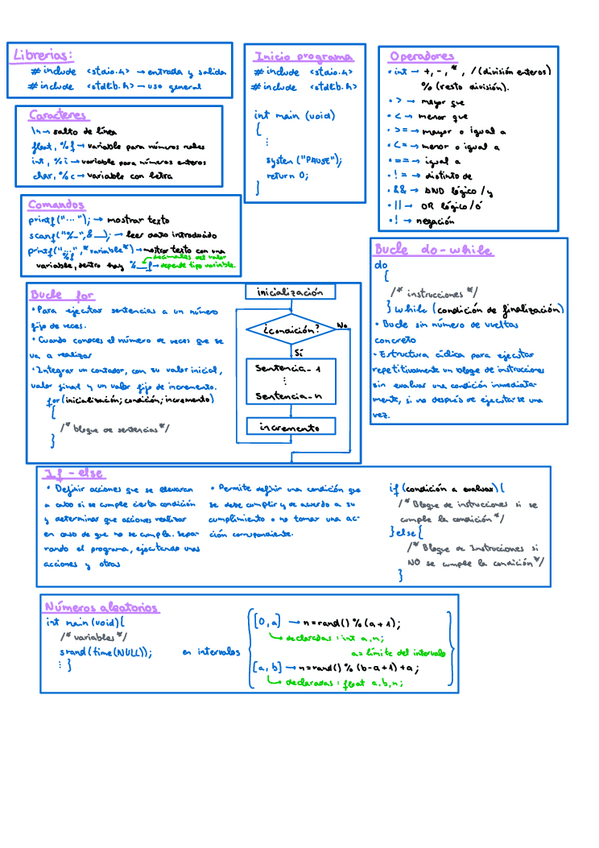 Librerías:
# include <stdio.h> → entrada y salida
# include <stdlib.h> → uso general
Caracteres
\n → salto de línea
float, %f → variable para números reales
int, %i → variable para números enteros
char, %c → variable con letra
Comandos
printf("..."); → mostrar texto
scanf("%_", &__); → leer dato introducido
printf("...", "variable") → mostrar texto con una
%f
decimales del valor
variable, dentro hay %._f → depende tipo variable.
Inicio programa
# include <stdio.h>
# include <stdlib.h>
int main (void)
{
⋮
system ("PAUSE");
return 0;
}
Operadores
• int → +, -, *, / (división enteros)
% (resto división).
• > → mayor que
• < → menor que
• >= → mayor o igual a
• <= → menor o igual a
• == → igual a
• != → distinto de
• && → AND lógico / y
• || → OR lógico / ó
• ! → negación
Bucle for
• Para ejecutar sentencias a un número
fijo de veces.
• Cuando conoces el número de veces que se
va a realizar
• Integrar un contador, con su valor inicial,
valor final y un valor fijo de incremento.
for (inicialización; condición; incremento)
{
/* bloque de sentencias */
}
inicialización
¿condición?
No
Sí
Sentencia_1
⋮
Sentencia_n
incremento
Bucle do-while
do
{
/* instrucciones */
} while (condición de finalización)
• Bucle sin número de vueltas
concreto
• Estructura cíclica para ejecutar
repetitivamente un bloque de instrucciones
sin evaluar una condición inmediata-
mente, si no después de ejecutarse una
vez.
If - else
• Definir acciones que se llevaran
a cabo si se cumple cierta condición
y determinar que acciones realizar
en caso de que no se cumpla. Sepa-
rando el programa, ejecutando unas
acciones y otras
• Permite definir una condición que
se debe cumplir y de acuerdo a su
cumplimiento o no tomar una ac-
ción correspondiente.
if (condición a evaluar) {
/* Bloque de instrucciones si se
cumple la condición */
} else {
/* Bloque de Instrucciones si
NO se cumple la condición */
}
Números aleatorios
int main (void) {
/* variables */
srand (time (NULL));
⋮ }
en intervalos
[0, a] → n = rand() % (a + 1);
declaradas: int a, n;
a = límite del intervalo
[a, b] → n = rand() % (b - a + 1) + a;
declaradas: float a, b, n;